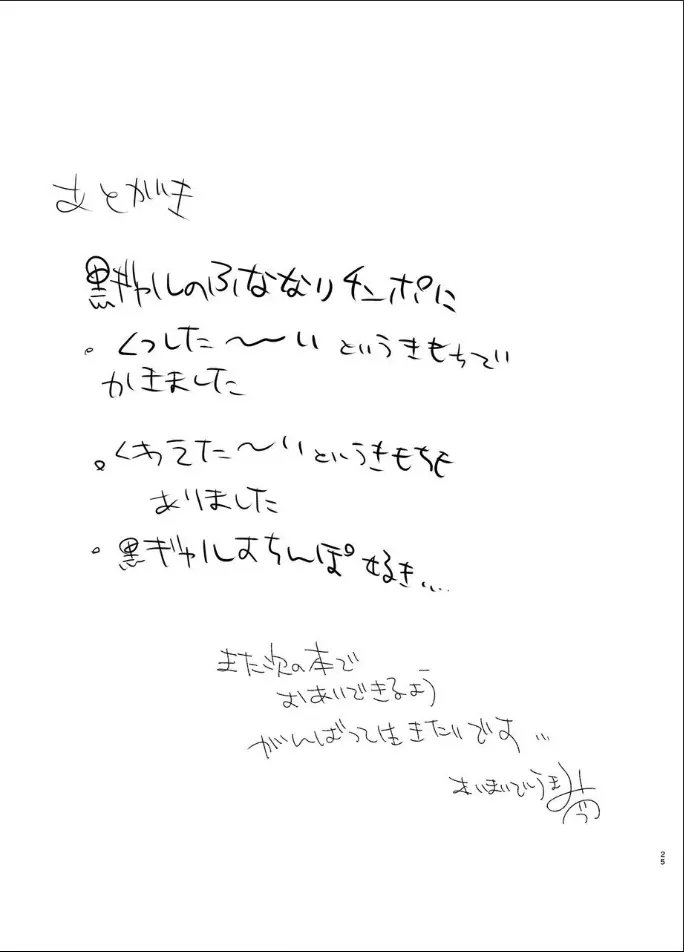 あとがき
黒ギャルのふたなりチンポに
・くっした〜〜いというきもちで
かきました
・くわえた〜いというきもちも
ありました
・黒ギャルおちんぽ好き…
また次の本で
おあいできるよう
がんばって生きたいです…
25